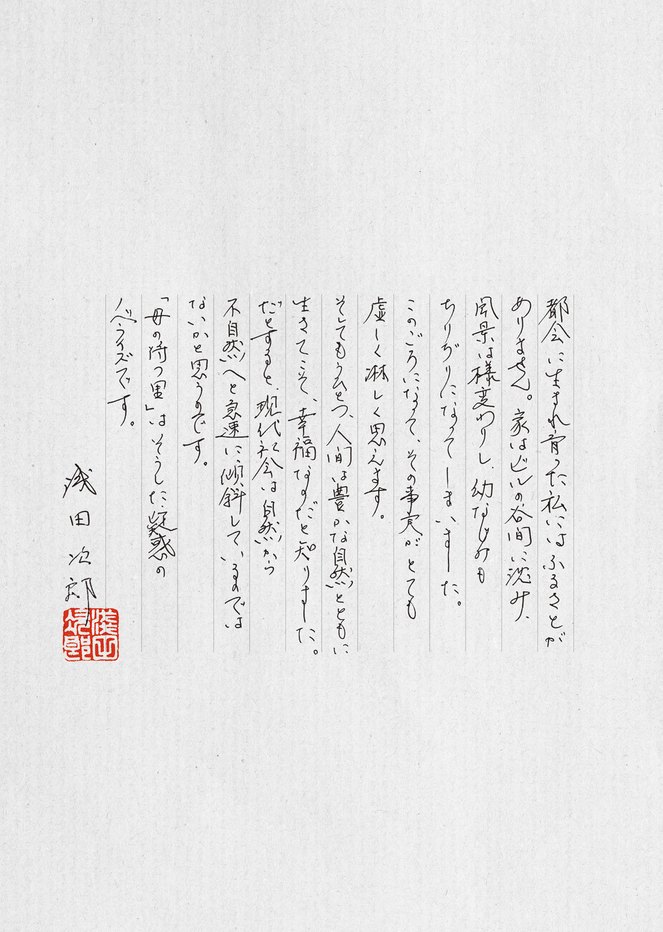 都会に生まれ育った私にはふるさとが
ありません。家はビルの谷間に沈み、
風景は様変わりし、幼なじみも
ちりぢりになってしまいました。
このごろになって、その事実がとても
虚しく淋しく思えます。
そしてもうひとつ、人間は豊かな自然とともに
生きてこそ、幸福なのだと知りました。
だとすると、現代社会は自然から
不自然へと急速に傾斜しているのでは
ないかと思うのです。
「母の待つ里」はそうした疑惑の
ノベライズです。
浅田次郎